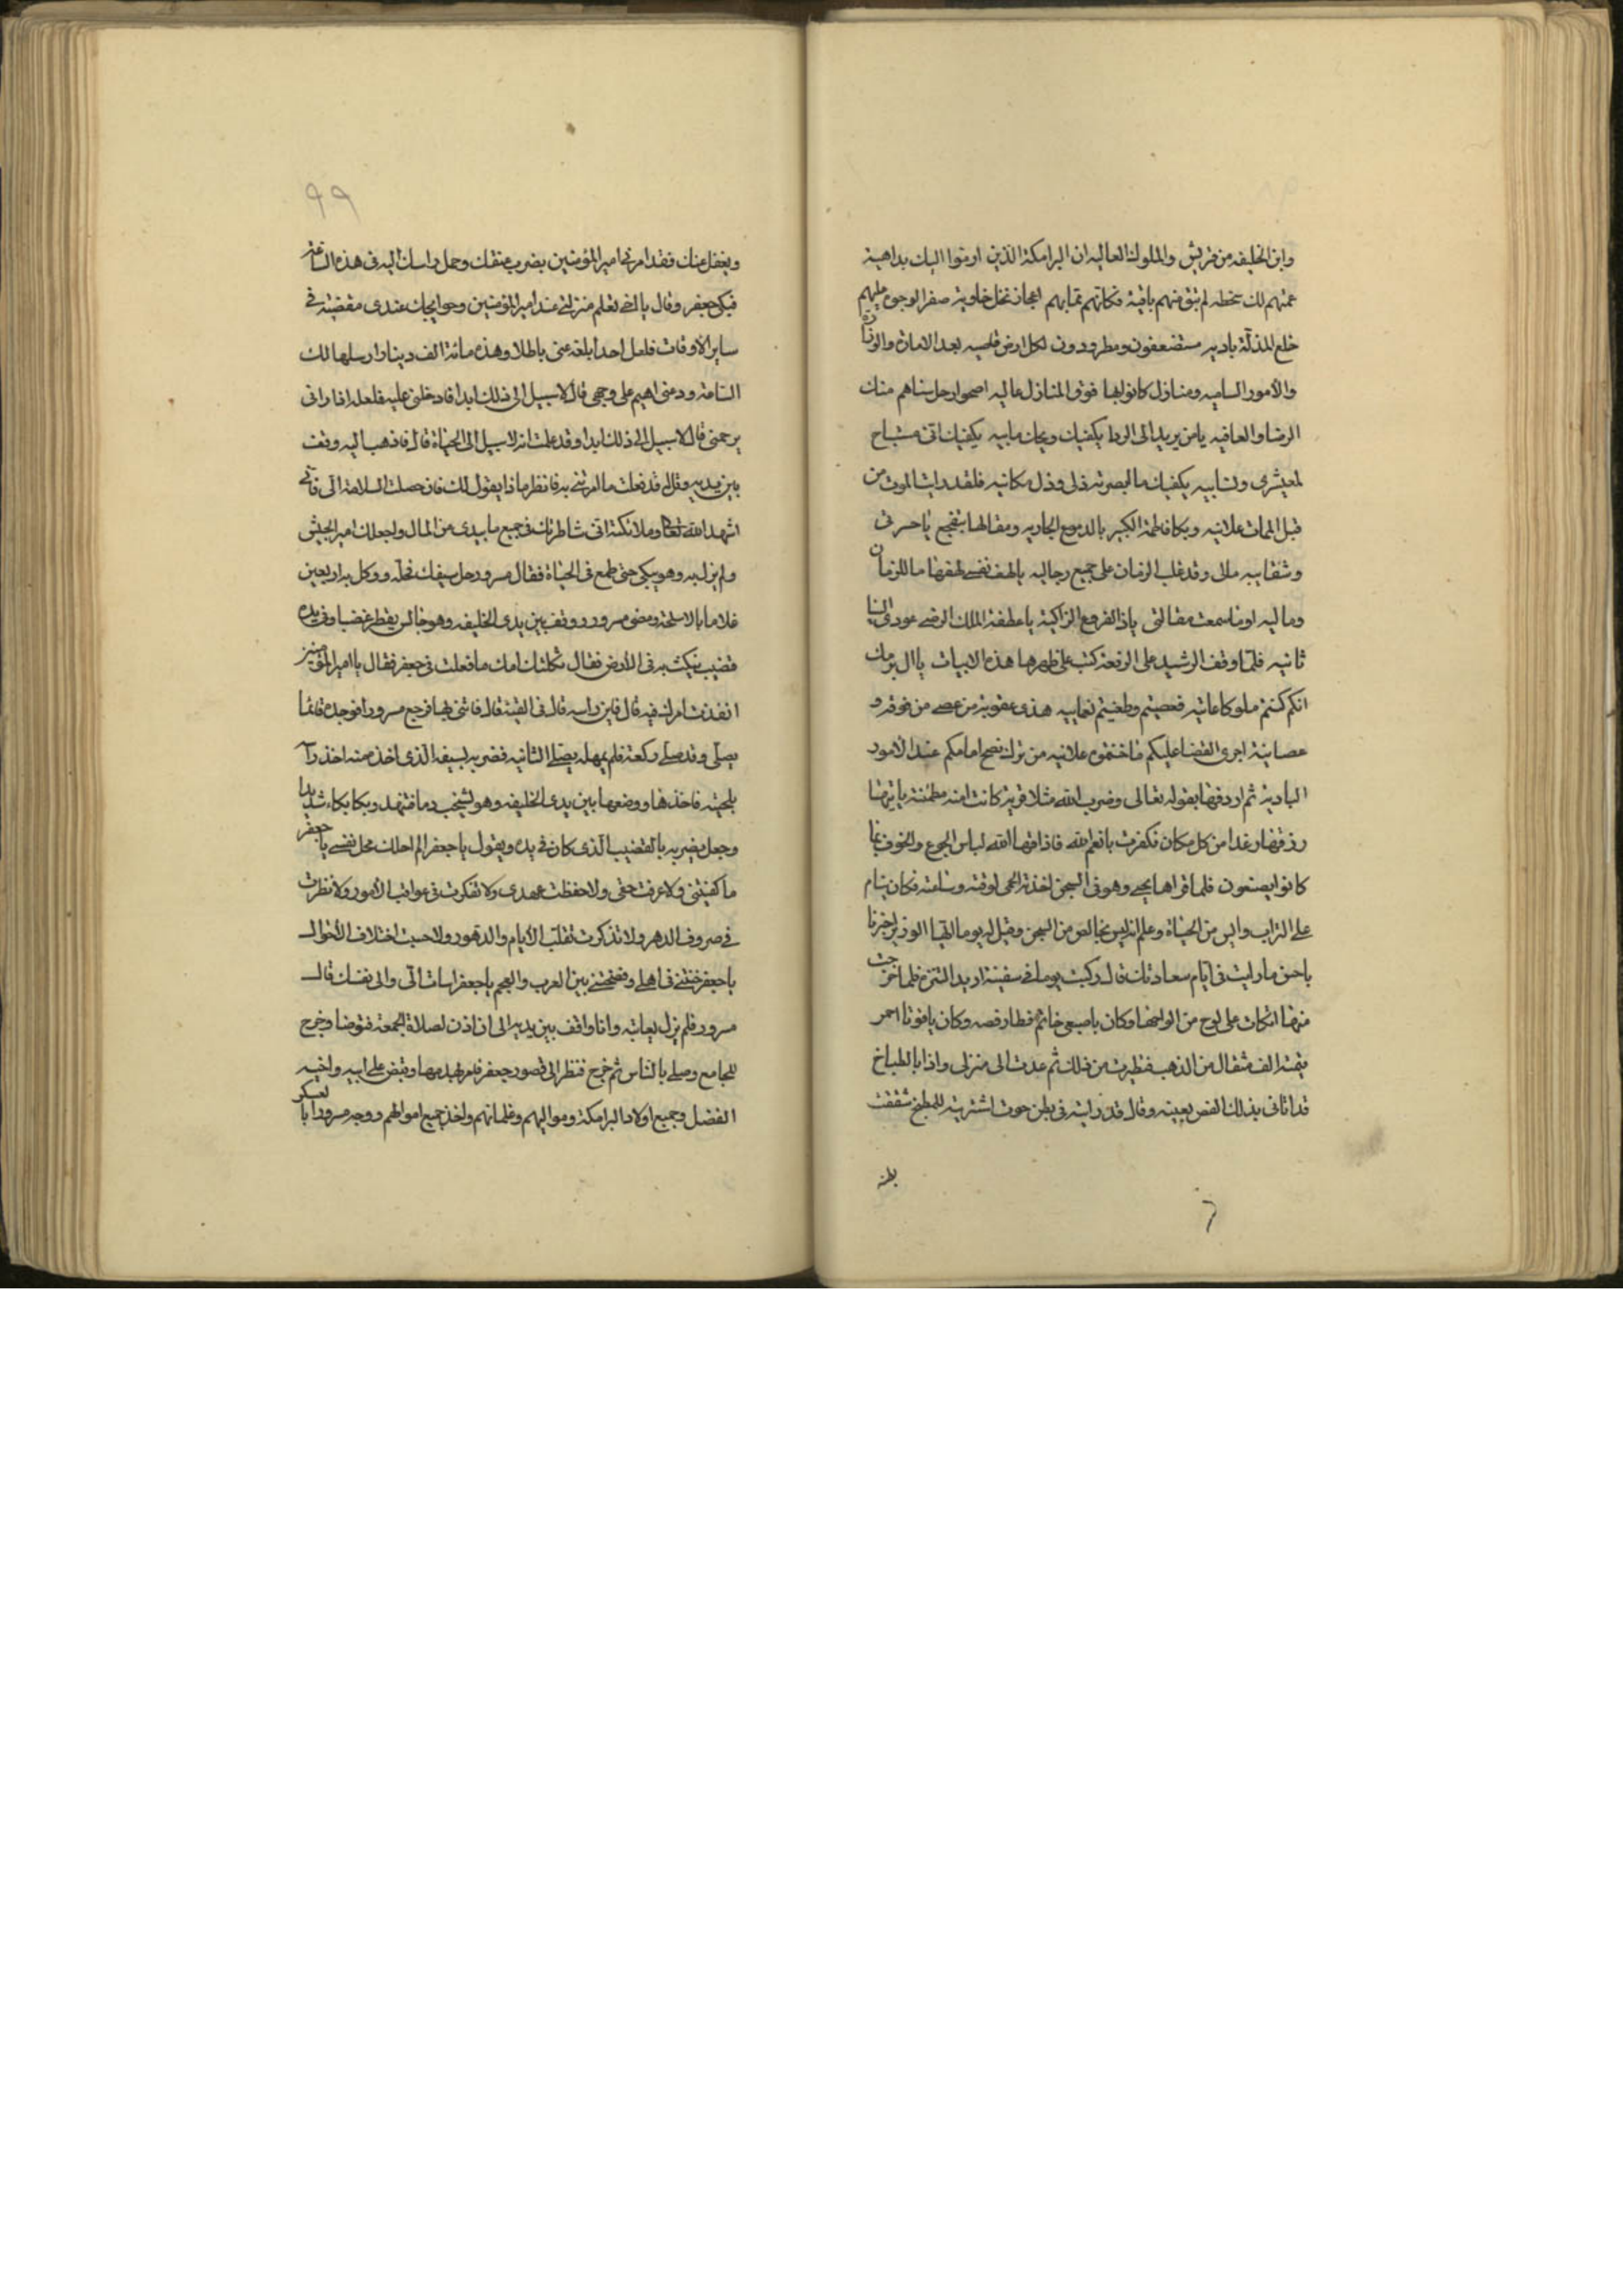 وابن الخليفه من قريش والملوك العاليه ان البرامكة الذين ارموا اليك بداهية
عمتهم لك سخطه لم تبق منهم باقية فكانهم مما بهم اعجاز نخل خاوية صفر الوجوه عليهم
خلع المذلة باديه مستضعفون ومطرودون لكل ارض قاصيه بعد الامارة والوزارة
والأمور الساميه ومنازل كانوا بها فوق المنازل عاليه اضحوا رجل مناهم منك
الرضا والعافيه يامن يريد الى الردا يكفيك ويحك ما بيه يكفيك اني مستباح
لمعشرى ونسابيه يكفيك ما ابصرته ذلى وذل مكانيه فلقد رايت الموت من
قبل الممات علانيه وبكا فاطمة الكبير بالدموع الجاريه ومقالها بتفجع ياحسرتى
وشقابيه مالى وقد غلب الزمان على جميع رجاليه يالهف نفسى لهفها ما للزمان
وماليه اوما سمعت مقالتى ياذا الفروع الزاكية ياعطفة الملك الرضى عودى الينا
ثانيه فلما وقف الرشيد على الرقعة كتب على ظهرها هذه الابيات ياال برمك
انكم كنتم ملوكا عاتيه فعصيتم وطغيتم نعمابيه هذى عقوبة من عصى من فوقه و
عصانية اجرى القضا عليكم ما خنتموه علانيه من ترك نصح امامكم عند الأمور
البادية ثم اردفها بقوله تعالى وضرب الله مثلا قرية كانت امنة مطمئنة ياتيها
رزقها رغدا من كل مكان فكفرت بانعم الله فاذاقها الله لباس الجوع والخوف بما
كانوا يصنعون فلما قراها يحيى وهو فى السجن اخذته الحمى لوقته وساعته فكان ينام
على التراب وايس من الحياة وعلم انه ليس بخالص من السجن وقيل له يوما ايها الوزير اخبرنا
باحسن مارايت فى ايام سعادتك قال ركبت يوما فى سفينة اريد التنزه فلما خرجت
منها اتكات على لوح من الواحها وكان باصبعى خاتم فطار فصه وكان ياقوتا احمر
قيمته الف مثقال من الذهب فتطيرت من ذلك ثم عدت الى منزلى واذا بالطباخ
قد اتانى بذلك الفص بعينه وقال قد رايته فى بطن حوت اشتريته للمطبخ شققت
بطنه
٩٩
ويغفل عنك فقد امرنى امير المؤمنين بضرب عنقك وحمل راسك اليه فى هذه الساعة
فبكى جعفر وقال يا اخى تعلم منزلتى عند امير المؤمنين وحوايجك عندى مقضية فى
ساير الأوقات فلعل احدا بلغه عنى باطلا وهذه مائة الف دينار ارسلها لك
الساعة ودعنى اهيم على وجهى قال لا سبيل الى ذلك ابدا قاد خلنى عليه فلعله اذا رانى
يرحمنى قال لا سبيل الى ذلك ابدا وقد علمت انه لا سبيل الى الحياة قال فاذهب اليه وقف
بين يديه وقل له قد فعلت ما امرتنى به فانظر ماذا يقول لك فان حصلت السلامة الى فانى
اشهد الله تعالى وملائكته انى شاطرتك فى جميع ما بيدى من المال ولجعلك امير الجيش
ولم يزل به وهو يبكى حتى طمع فى الحياة فقال مسرور حل سيفك فحله ووكل به اربعين
غلاما بالاسلحة ومضى مسرور ووقف بين يدى الخليفه وهو جالس يقطر غضبا وفى يده
قضيب ينكث به فى الأرض فقال ثكلتك امك ما فعلت فى جعفر فقال يا امير المؤمنين
انفذت امرك فيه قال فاين راسه قال فى القبة قال فاتنى بها فرجع مسرور افوجده قائما
يصلى وقد صلى ركعة فلم يمهله يصلى الثانيه فضربه بسيفه الذى اخذه منه اخذ راسه
بلحيته فاخذها ووضعها بين يدى الخليفه وهو يشخب دما فتنهد وبكا بكاء شديدا
وجعل يضربه بالقضيب الذى كان فى يده ويقول يا جعفر الم احلك محل نفسى يا جعفر
ما كفيتنى ولا عرفت حقى ولا حفظت عهدى ولا تفكرت فى عواقب الأمور ولا نظرت
فى صروف الدهر ولا تذكرت تقلب الأيام والدهور ولا حسبت اختلاف الأحوال
يا جعفر خنتنى فى اهلى وفضحتنى بين العرب والعجم يا جعفر اسات الى والى نفسك قال
مسرور فلم يزل يعاتبه وانا واقف بين يديه الى ان اذن لصلاة الجمعة فتوضا وخرج
للجامع وصلى بالناس ثم خرج فنظر الى قصور جعفر فامر بهدمها وقبض على ابيه واخيه
الفضل وجميع اولاد البرامكة ومواليهم وغلمانهم واخذ جميع اموالهم ووجه مسرورا بالعسكر